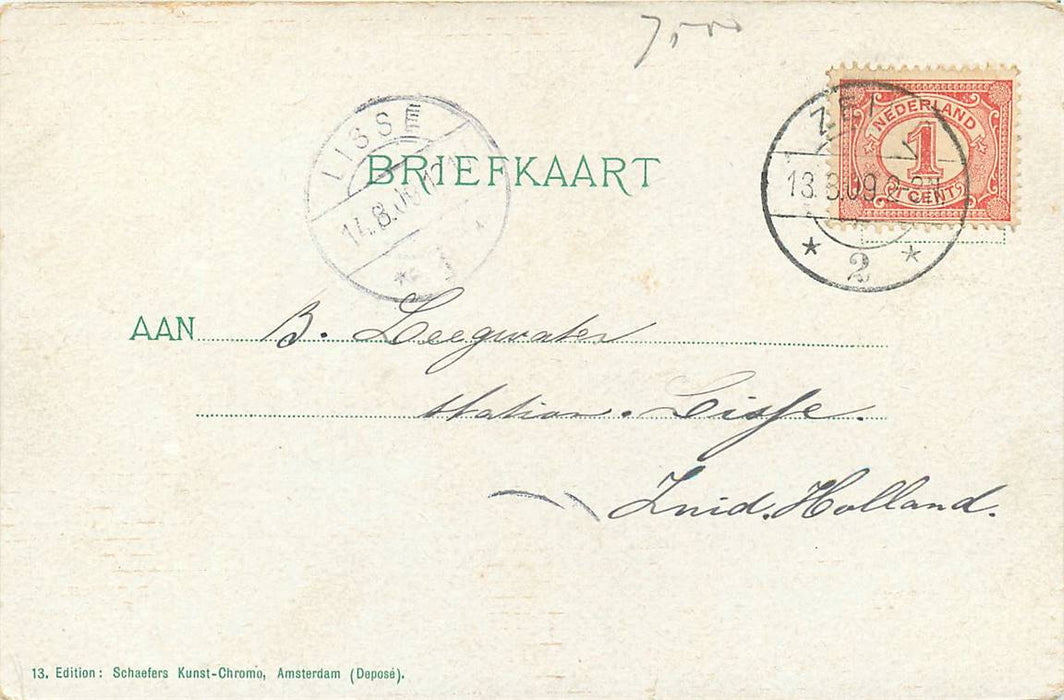 7,00
NEDERLAND
1
CENT
13.8.09
2
LISSE
14.8.09
BRIEFKAART
AAN B. Leegwater
station. Lisse.
Zuid. Holland.
13. Edition: Schaefers Kunst-Chromo, Amsterdam (Deposé).